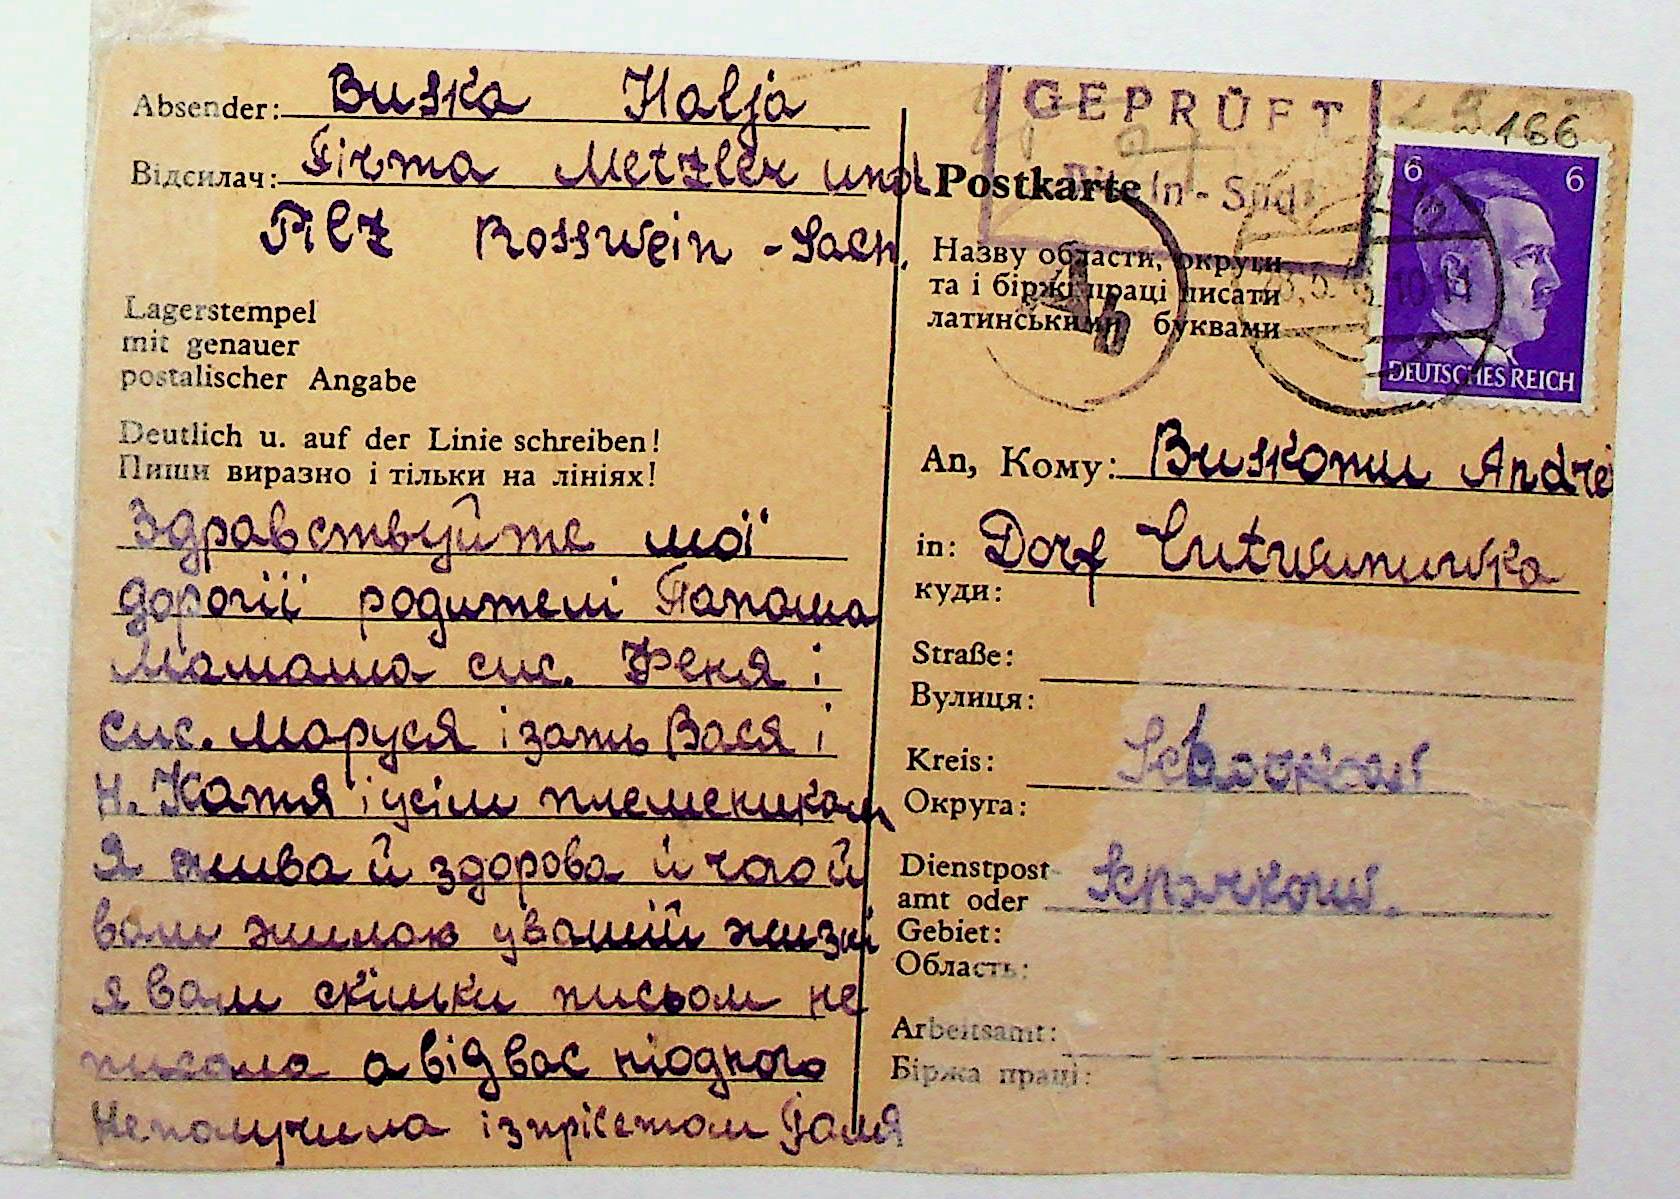 Absender: Buska Halja
Відсилач: Firma Metzler und
Pilz Rosswein - Sach.
Lagerstempel
mit genauer
postalischer Angabe
Deutlich u. auf der Linie schreiben!
Пиши виразно і тільки на лініях!
Здравствуйте мої
дорогії родителі Папаша
Мамаша сис. Феня і
сис. Маруся і зать Вася і
н. Катя і усім племеникам
Я жива й здорова й чого й
вам жилаю увашій жизні
я вам скільки писом не
писала а від вас ніодного
Неполучила ізпрівєтом Галя
GEPRÜFT
166
Postkarte
Назву області, округи
та і біржі праці писати
латинськими буквами
Ab
6 6
DEUTSCHES REICH
An, Кому: Buskomu Andrei
in: Dorf
куди:
Straße:
Вулиця:
Kreis:
Округа:
Dienstpost-
amt oder
Gebiet:
Область:
Arbeitsamt:
Біржа праці: